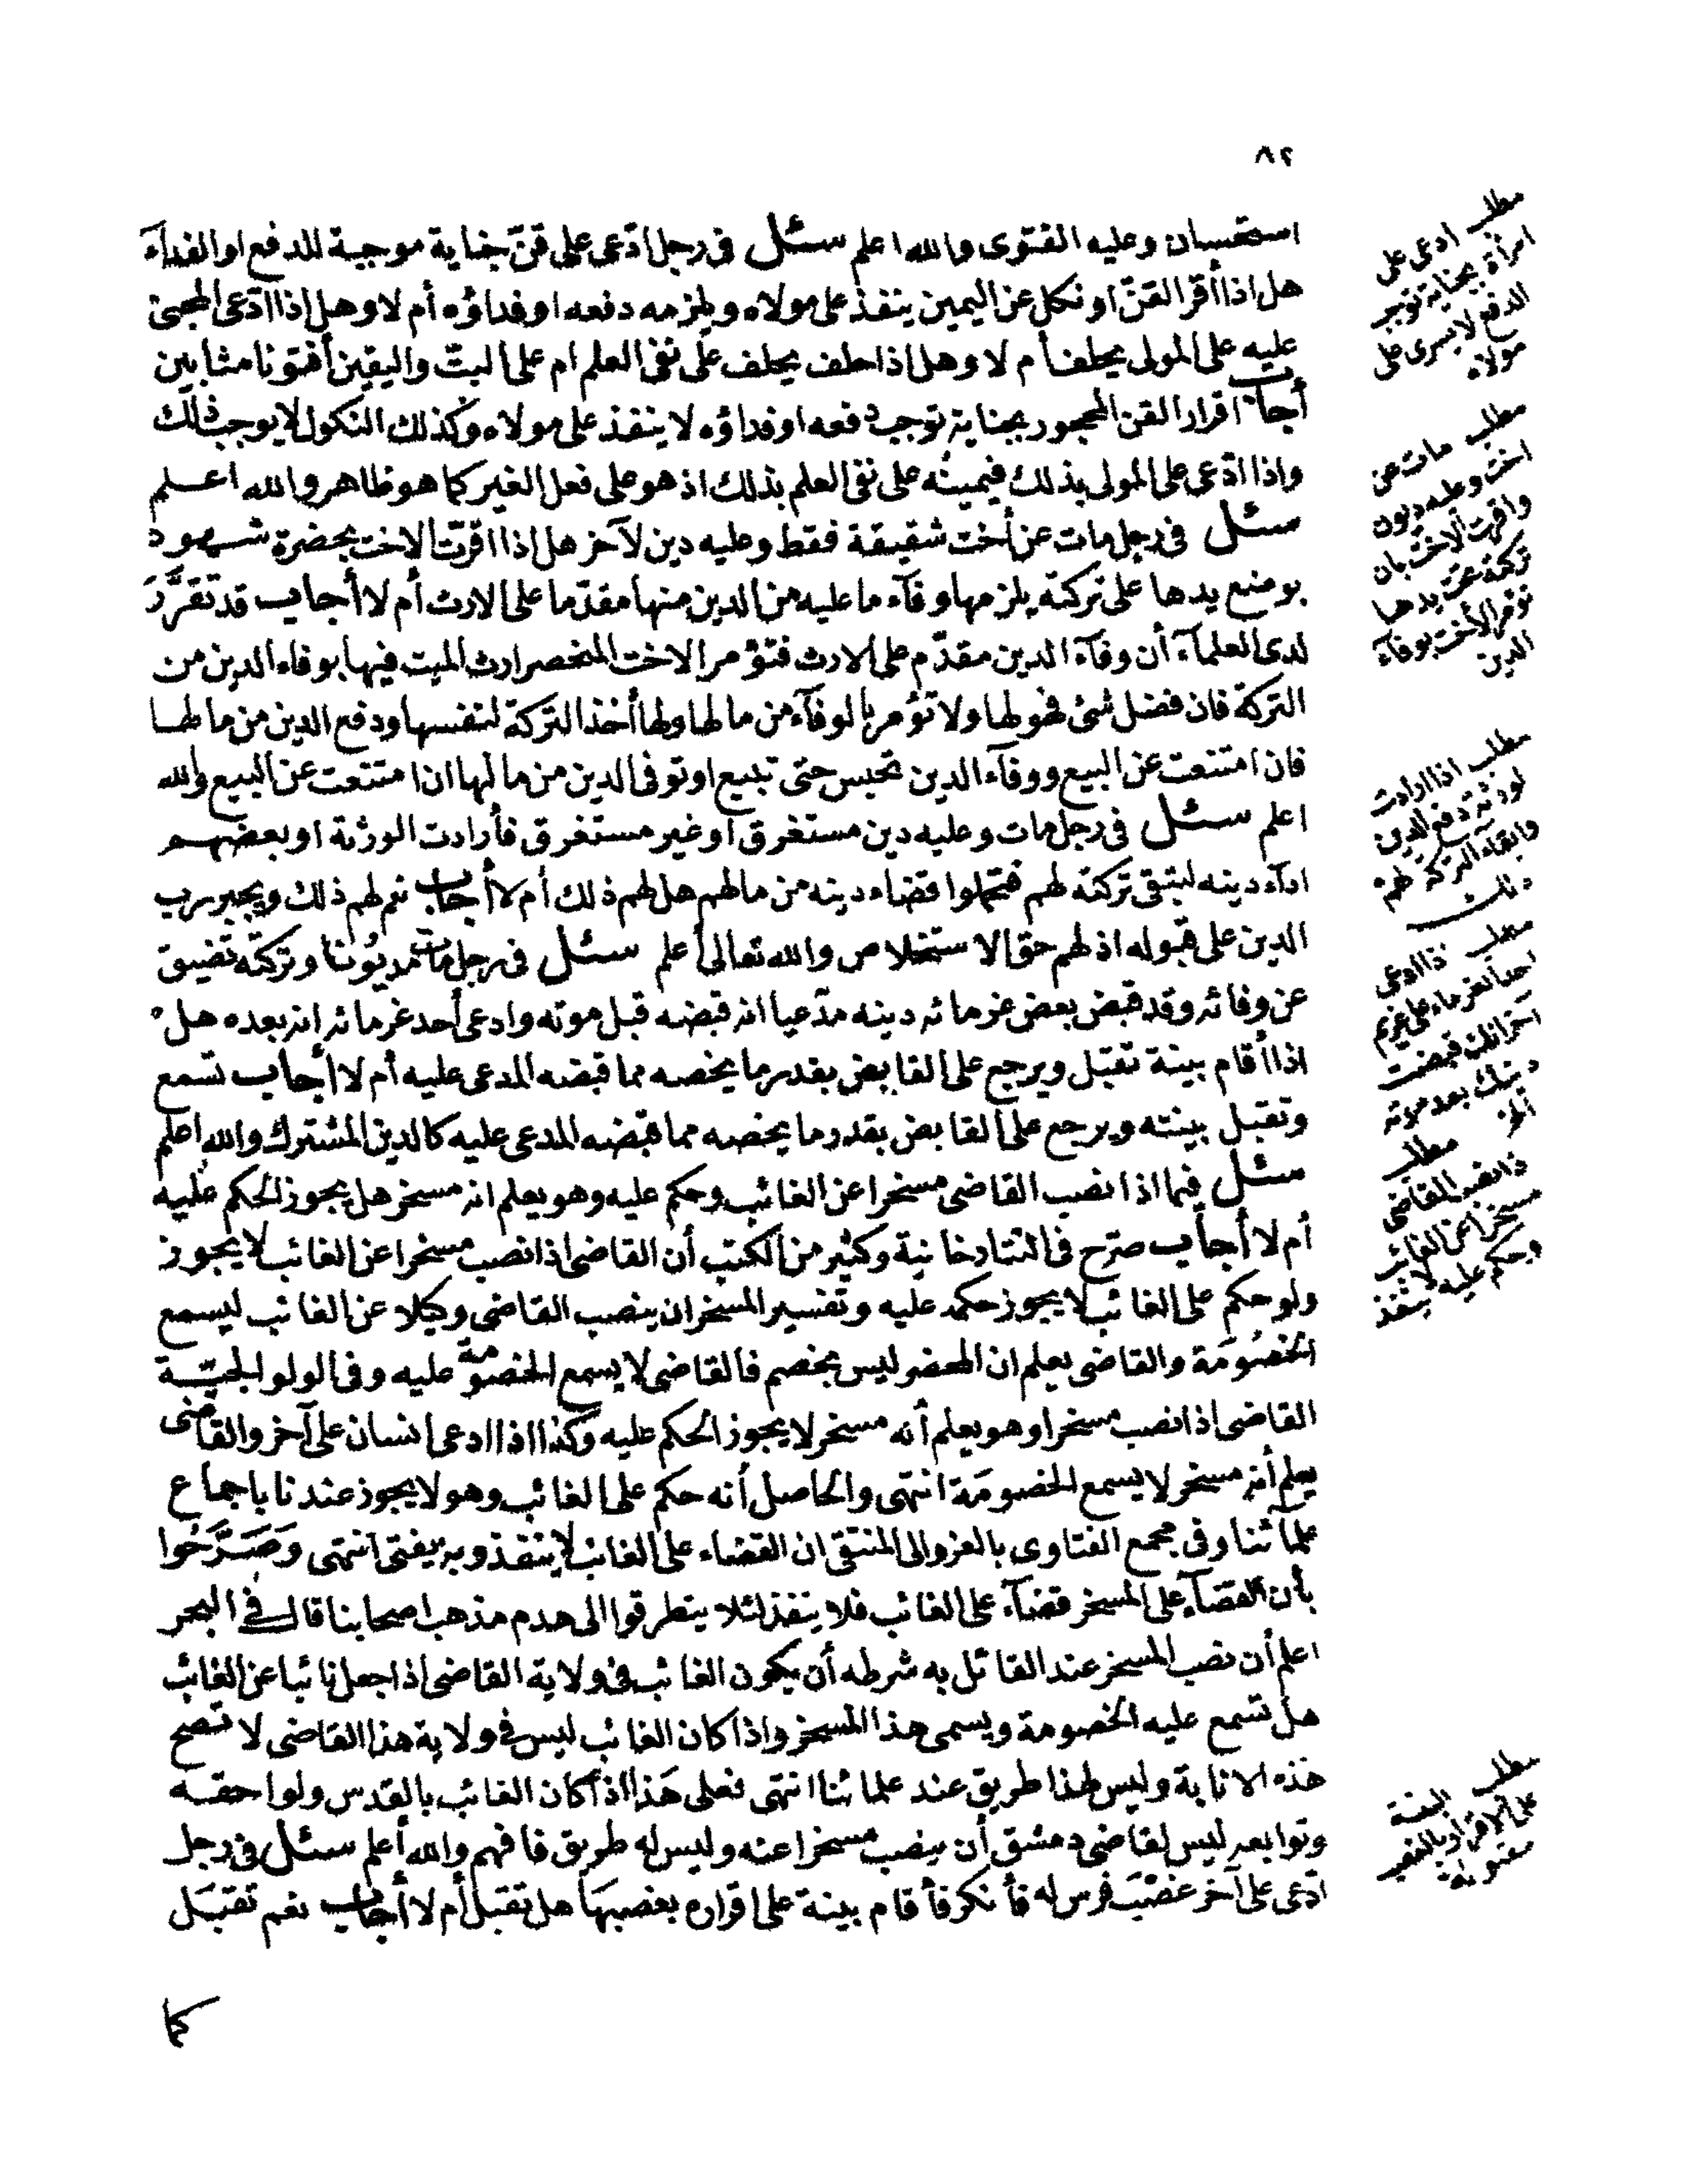 ٨٢
استحسان وعليه الفتوى والله اعلم سئل فى رجل ادّعى على قنّ جناية موجبة للدفع او الفدآء
هل اذا أقر القنّ او نكل عن اليمين ينفذ على مولاه ويلزمه دفعه او فداؤه أم لا وهل اذا ادّعى المجنى
عليه على المولى يحلف أم لا وهل اذا حلف يحلف على نفى العلم ام على البتّ واليقين أفتونا مثابين
أجاب اقرار القن المحجور بجناية توجب دفعه او فداؤه لا ينفذ على مولاه وكذلك النكول لا يوجب ذلك
واذا ادّعى على المولى بذلك فيمينه على نفى العلم بذلك اذ هو على فعل الغير كما هو ظاهر والله اعلم
سئل فى رجل مات عن أخت شقيقة فقط وعليه دين لآخر هل اذا اقرّت الاخت بحضرة شهود
بوضع يدها على تركته يلزمها وفآء ما عليه من الدين منها مقدّما على الارث أم لا أجاب قد تقرَّرَ
لدى العلمآء أن وفآء الدين مقدّم على الارث فتؤمر الاخت المنحصر ارث الميت فيها بوفاء الدين من
التركة فان فضل شئ فهو لها ولا تؤمر بالوفآء من مالها ولها أخذ التركة لنفسها ودفع الدين من مالها
فان امتنعت عن البيع ووفآء الدين تحبس حتى تبيع او توفى الدين من مالها ان امتنعت عن البيع والله
اعلم سئل فى رجل مات وعليه دين مستغرق او غير مستغرق فأرادت الورثة او بعضهم
ادآء دينه لتبقى تركته لهم فتحملوا قضاء دينه من مالهم هل لهم ذلك أم لا أجاب نعم لهم ذلك ويجبر رب
الدين على قبوله اذ لهم حق الاستخلاص والله تعالى أعلم سئل فى رجل مات مديُونا وتركته تضيق
عن وفائه وقد قبض بعض غرمائه دينه مدّعيا انه قبضه قبل موته وادعى أحد غرمائه انه بعده هل
اذا أقام بينة تقبل ويرجع على القابض بقدر ما يخصه مما قبضه المدعى عليه أم لا أجاب تسمع
وتقبل بينته ويرجع على القابض بقدر ما يخصه مما قبضه المدعى عليه كالدين المشترك والله اعلم
سئل فيما اذا نصب القاضى مسخرا عن الغائب وحكم عليه وهو يعلم انه مسخر هل يجوز الحكم عليه
أم لا أجاب صرّح فى التتارخانية وكثير من الكتب أن القاضى اذا نصب مسخرا عن الغائب لا يجوز
ولو حكم على الغائب لا يجوز حكمه عليه وتفسير المسخر ان ينصب القاضى وكيلا عن الغائب ليسمع
الخصُومَة والقاضى يعلم ان المحضر ليس بخصم فالقاضى لا يسمع الخصومة عليه وفى الولوالجيّة
القاضى اذا نصب مسخرا وهو يعلم أنه مسخر لا يجوز الحكم عليه وكذا اذا ادعى انسان على آخر والقاضى
يعلم أنه مسخر لا يسمع الخصومَة انتهى والحاصل أنه حكم على الغائب وهو لا يجوز عندنا باجماع
علمآئنا وفى مجمع الفتاوى بالعزو الى المنتقى ان القضاء على الغائب لا ينفذ وبه يفتى انتهى وَصَرَّحُوا
بأن القضآء على المسخر قضآء على الغائب فلا ينفذ لئلا يتطرقوا الى هدم مذهب اصحابنا قال فى البحر
اعلم أن نصب المسخر عند القائل به شرطه أن يكون الغائب فى ولاية القاضى اذا جعل نائبا عن الغائب
هل تسمع عليه الخصومة ويسمى هذا المسخر واذا كان الغائب ليس فى ولاية هذا القاضى لا تصح
هذه الانابة وليس لهذا طريق عند علمائنا انتهى فعلى هَذا اذا كان الغائب بالقدس ولواحقه
وتوابعه ليس لقاضى دمشق أن ينصب مسخرا عنه وليس له طريق فافهم والله أعلم سئل فى رجل
ادّعى على آخر غصْبَ فرس له فأنكر فأقام بينة على اقراره بغصبهَا هل تقبل أم لا أجاب نعم تقبَل
كما
مطلب ادعى على
امرأة بجناية توجب
الدفع لا يسرى على
مولاه
مطلب مات عن
اخت وعليه ديون
واقرت الاخت بان
تركته تحت يدها
تؤمر الاخت بوفآء
الدين
مطلب اذا ارادت
الورثة دفع الدين
وابقاء التركة لهم
ذلك
مطلب اذا ادعى
احد الغرماء على غريم
آخر انك قبضت
دينك بعد موته
الخ
مطلب
اذا نصب القاضى
مسخرا عن الغائب
وحكم عليه لا ينفذ
مطلب البينة
على الاقرار بالغصب
مقبولة